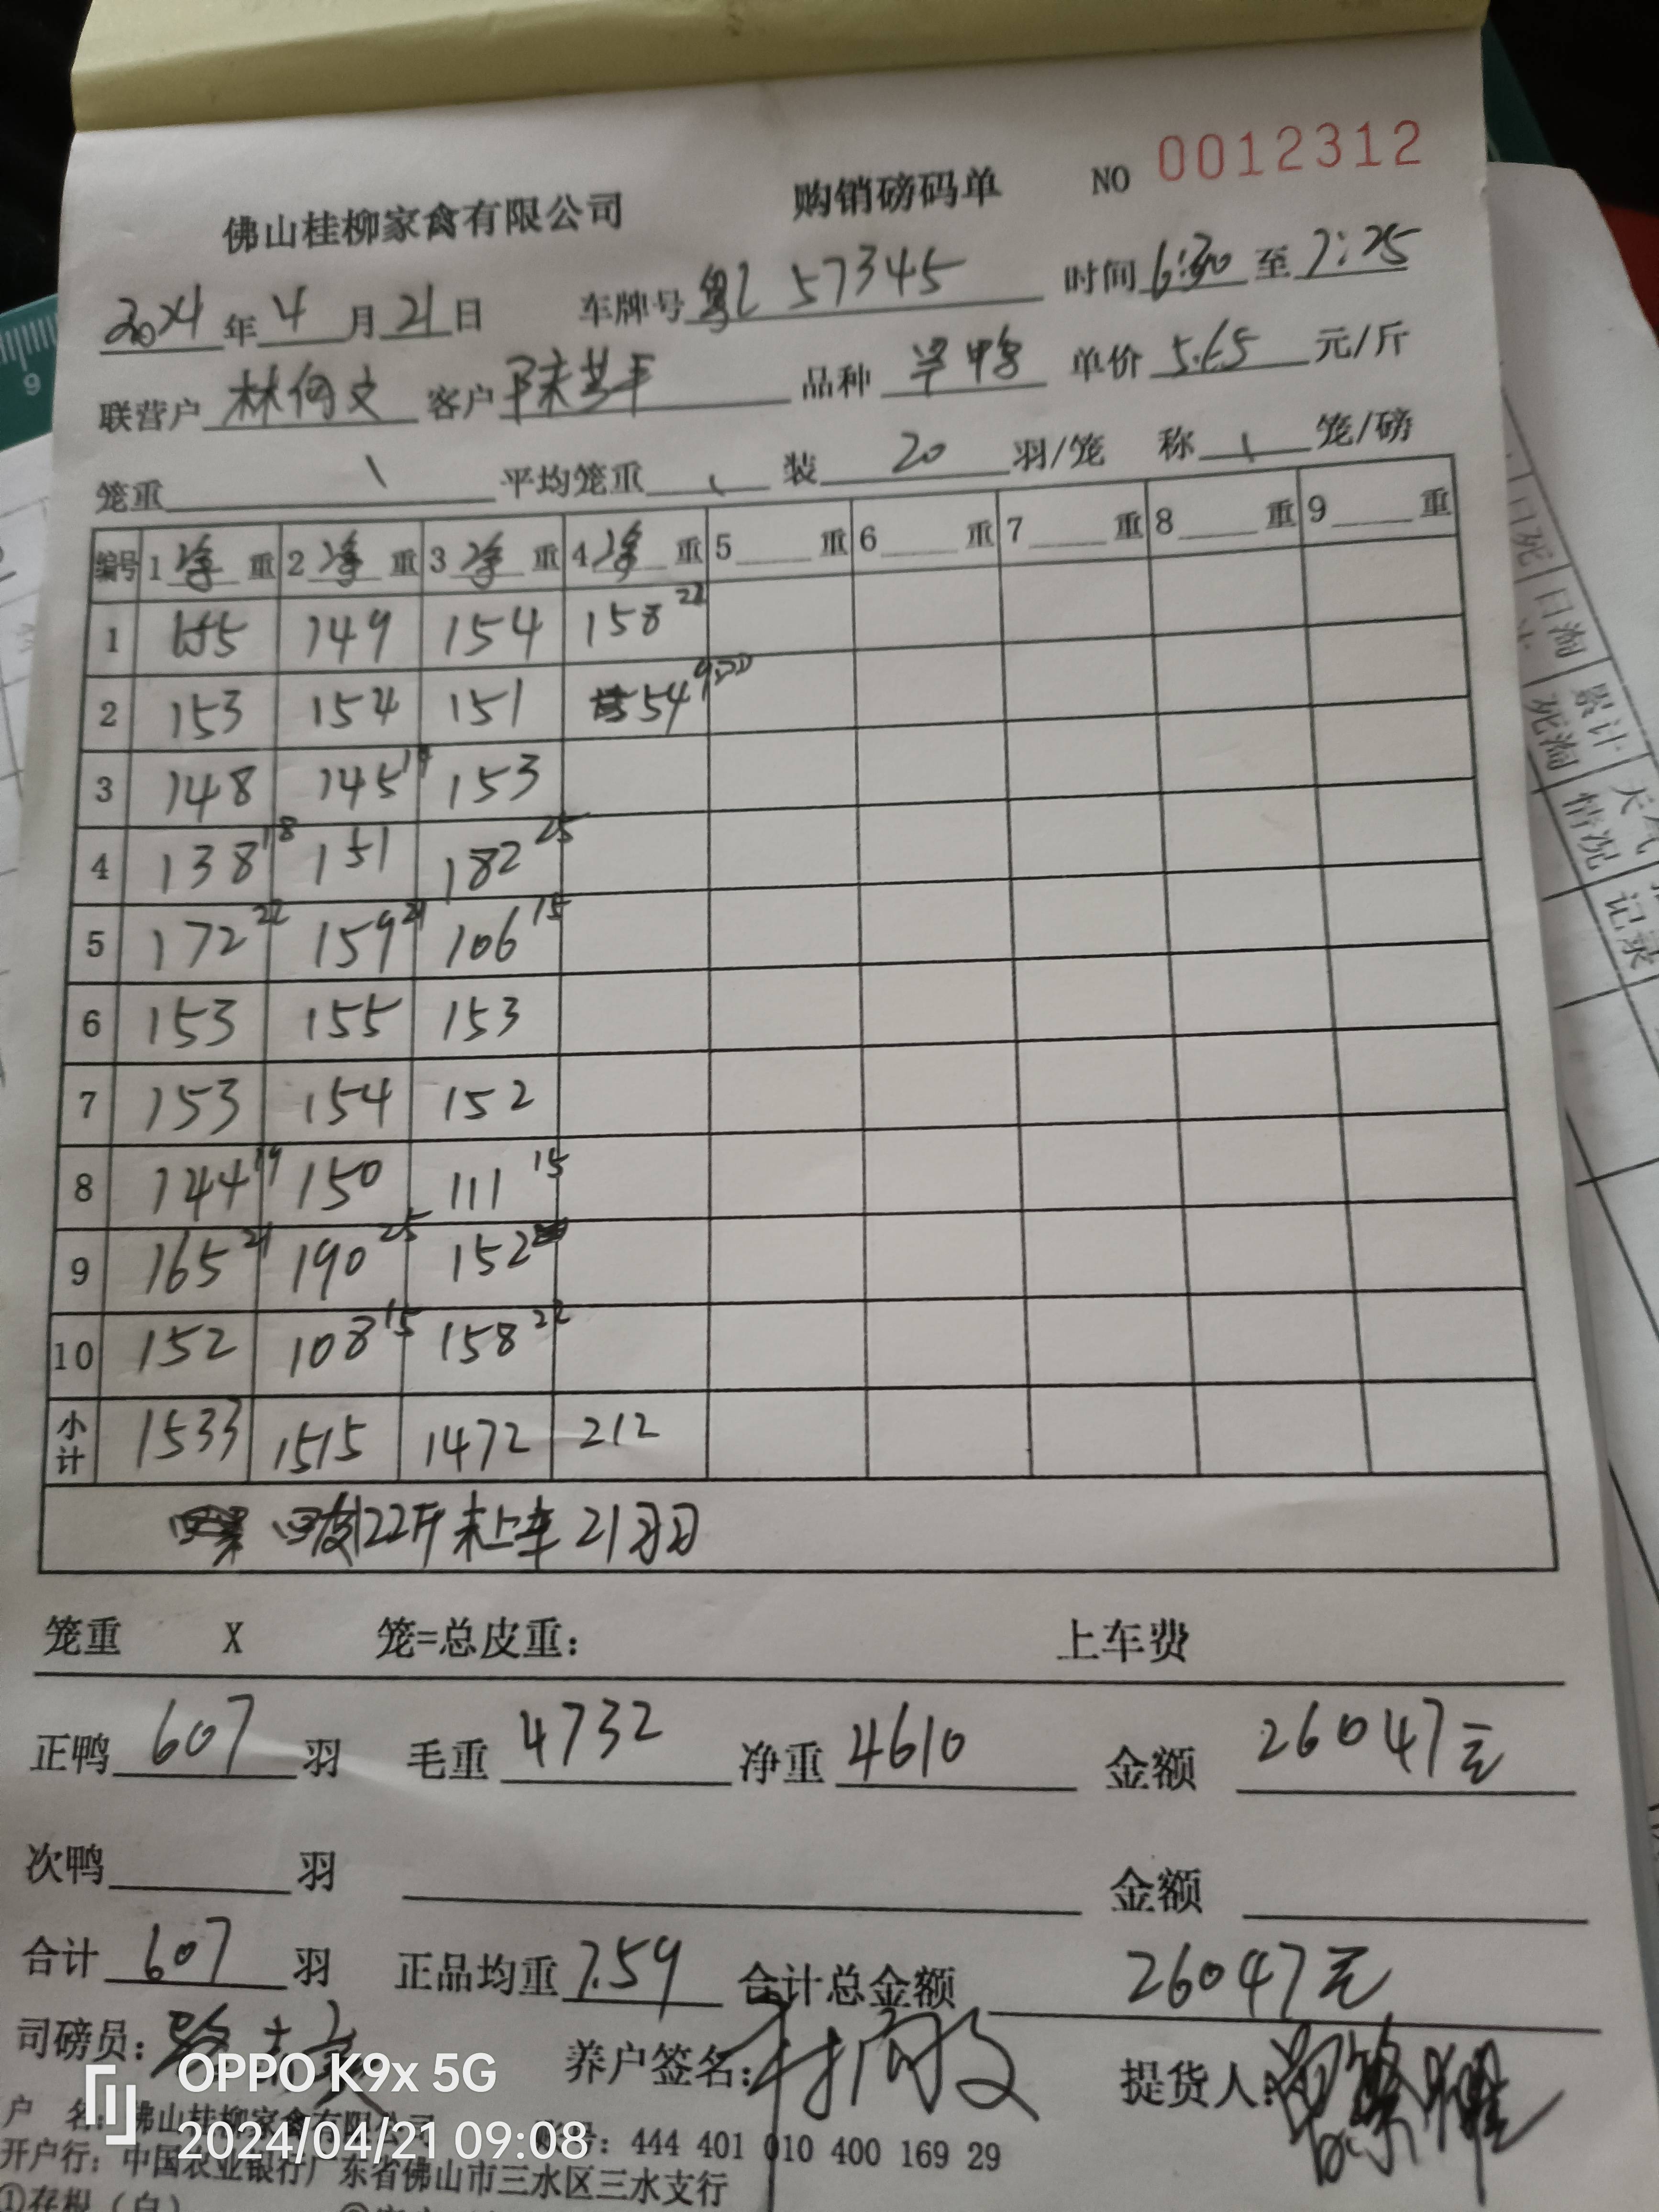 NO 0012312
佛山桂柳家禽有限公司 购销磅码单
2024年4月21日 车牌号 粤L 57345 时间 6:30 至 7:25
联营户 林向文 客户 陈 品种 鸭 单价 5.65 元/斤
笼重 \ 平均笼重 \ 装 20 羽/笼 称 \ 笼/磅
编号 1 净 重 2 净 重 3 净 重 4 净 重 5 重 6 重 7 重 8 重 9 重
1 155 149 154 158 22
2 153 154 151 54
3 148 145 19 153
4 138 18 151 182 25
5 172 22 159 21 106 15
6 153 155 153
7 153 154 152
8 144 19 150 111 15
9 165 21 190 25 152
10 152 108 15 158 22
小计 1533 1515 1472 212
122斤 未上车 21
笼重 X 笼=总皮重: 上车费
正鸭 607 羽 毛重 4732 净重 4610 金额 26047元
次鸭 羽 金额
合计 607 羽 正品均重 7.59 合计总金额 26047元
司磅员: 养户签名: 林向文 提货人:
OPPO K9x 5G
户 名: 佛山桂柳家禽有限公司 账号: 444 401 010 400 169 29
2024/04/21 09:08
开户行: 中国农业银行广东省佛山市三水区三水支行
①存根（白）
日死
日淘
累计
死淘
天气
情况
记录
9